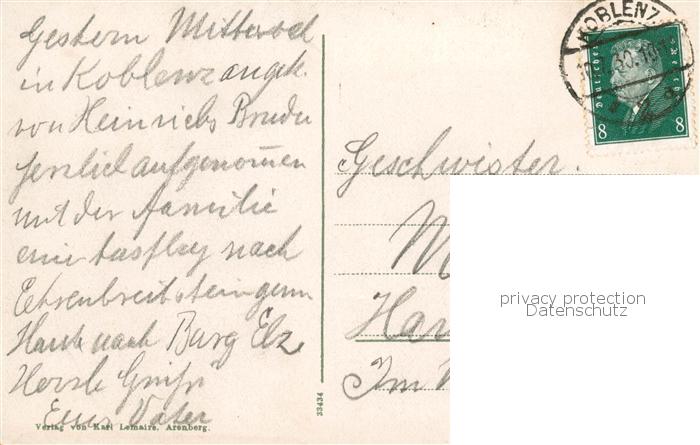 Gestern Mittwoch
in Koblenz angek.
von Heinrichs Bruder
herzlich aufgenommen
mit der Familie
ein Ausflug nach
Ehrenbreitstein gem
Heute nach Burg Elz
Herzl. Grüße
Euer Vater
Verlag von Karl Lemaire, Arenberg.
33434
KOBLENZ
30.10-11
Deutsches Reich
8 8
Geschwister
M
Har
Im
privacy protection
Datenschutz